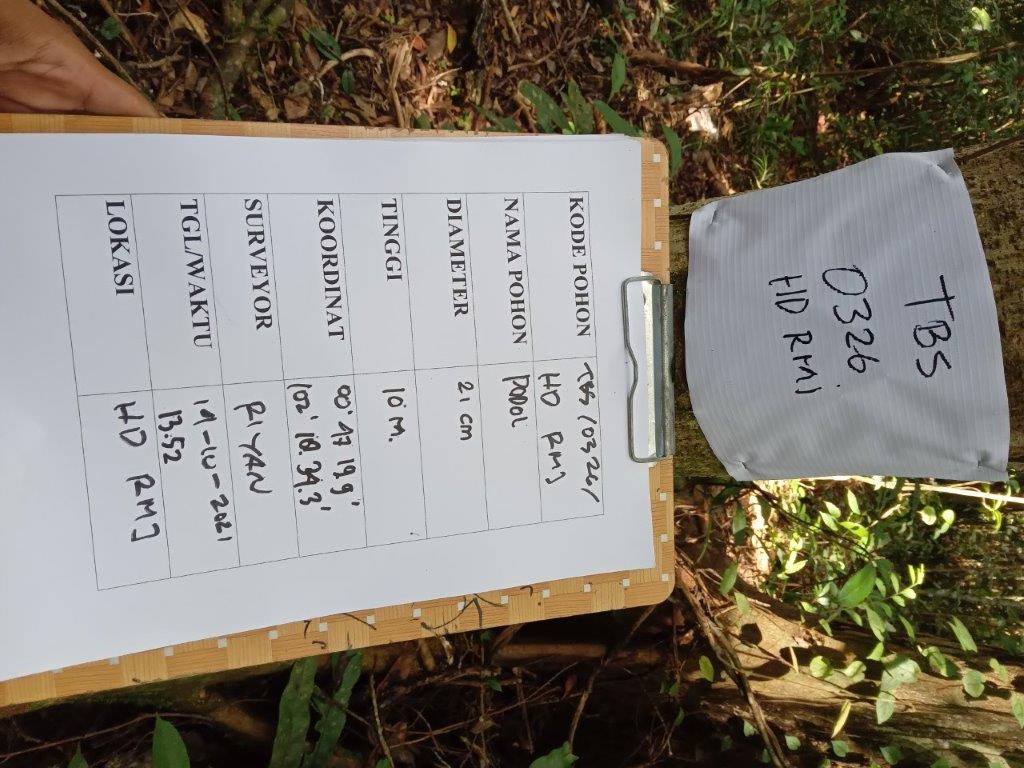 TBS
0326
HD RMJ
KODE POHON TBS/0326/
HD RMJ
NAMA POHON PODOL
DIAMETER 21 cm
TINGGI 10 M.
KOORDINAT 00° 47 19.9'
102° 18. 34.3'
SURVEYOR RIYAN
TGL/WAKTU 19-10-2021
13.52
LOKASI HD RMJ